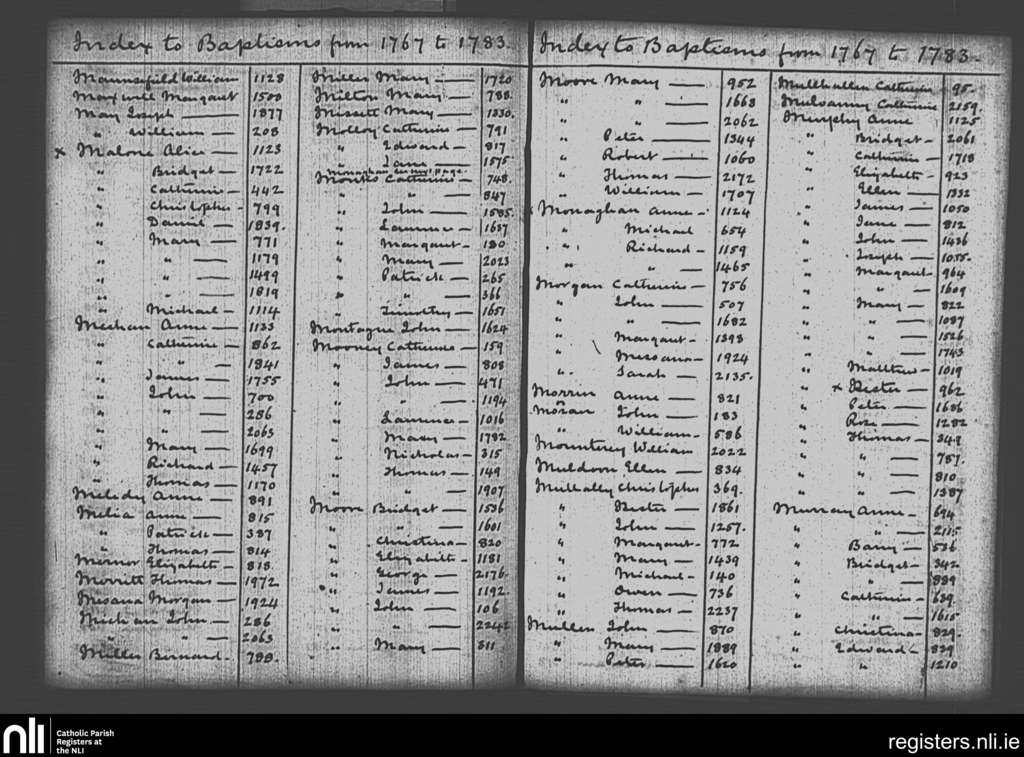 Index to Baptisms from 1767 to 1783.
Maunsifield William 1128
Maxwell Margaret 1500
May Joseph 1877
" William 208
x Malone Alice 1123
" Bridget 1722
" Catherine 442
" Christopher 799
" Daniel 1839.
" Mary 771
" " 1179
" " 1499
" " 1819
" Michael 1114
Meehan Anne 1133
" Catherine 862
" " 1841
" James 1755
" John 700
" " 286
" " 2063
" Mary 1699
" Richard 1457
" Thomas 1170
Meledy Anne 891
Melia Anne 815
" Patrick 337
" Thomas 814
Elizabeth 818.
Merritt Thomas 1972
Mesana Morgan 1924
Meehan John 286
" " 2063
Miller Bernard 788.
Miller Mary 1720
Milton Mary 788.
Missett Mary 1830.
Molloy Catherine 791
" Edward 817
" Jane 1575
Monaghan see next page
Monks Catherine 748.
" " 847
" John 1585.
" Laurence 1637
" Margaret 180
" Mary 2023
" Patrick 265
" " 366
" Timothy 1651
Montague John 1624
Mooney Catherine 159
" James 808
" John 471
" " 1194
" Laurence 1016
" Mary 1782
" Nicholas 315
" Thomas 149
" " 1907
Moore Bridget 1536
" " 1601
" Christina 820
" Elizabeth 1181
" George 2176.
" James 1192.
" John 106
" " 2242
" Mary 311
Index to Baptisms from 1767 to 1783.
Moore Mary 952
" " 1668
" " 2062
" Peter 1344
" Robert 1060
" Thomas 2172
" William 1707
Monaghan Anne 1124
" Michael 654
" Richard 1159
" " 1465
Morgan Catherine 756
" John 507
" " 1682
" Margaret 1398
" Mesana 1924
" Sarah 2135.
Morrin Anne 821
Moran John 183
" William 586
Mounterey William 2022
Muldoon Ellen 834
Mullally Christopher 369.
" Hester 1861
" John 1257.
" Margaret 772
" Mary 1439
" Michael 140
" Owen 736
" Thomas 2237
Mullen John 870
" Mary 1889
" Peter 1620
Mulhallen Catherine 95
Mulvanny Catherine 2159.
Murphy Anne 1125
" Bridget 2061
" Catherine 1718
" Elizabeth 923
" Ellen 1332
" James 1050
" Jane 812
" John 1436
" Joseph 1055.
" Margaret 964
" " 1609
" Mary 822
" " 1087
" " 1526
" " 1743
" Matthew 1019
" x Hester 962
" Peter 1686
" Rose 1282
" Thomas 349
" " 787.
" " 810
" " 1387
Murray Anne 694
" " 2115
" Barry 536
" Bridget 342
" " 889
" Catherine 639.
" " 1615
" Christina 829
" Edward 829
" " 1210
nli Catholic Parish
Registers at
the NLI
registers.nli.ie